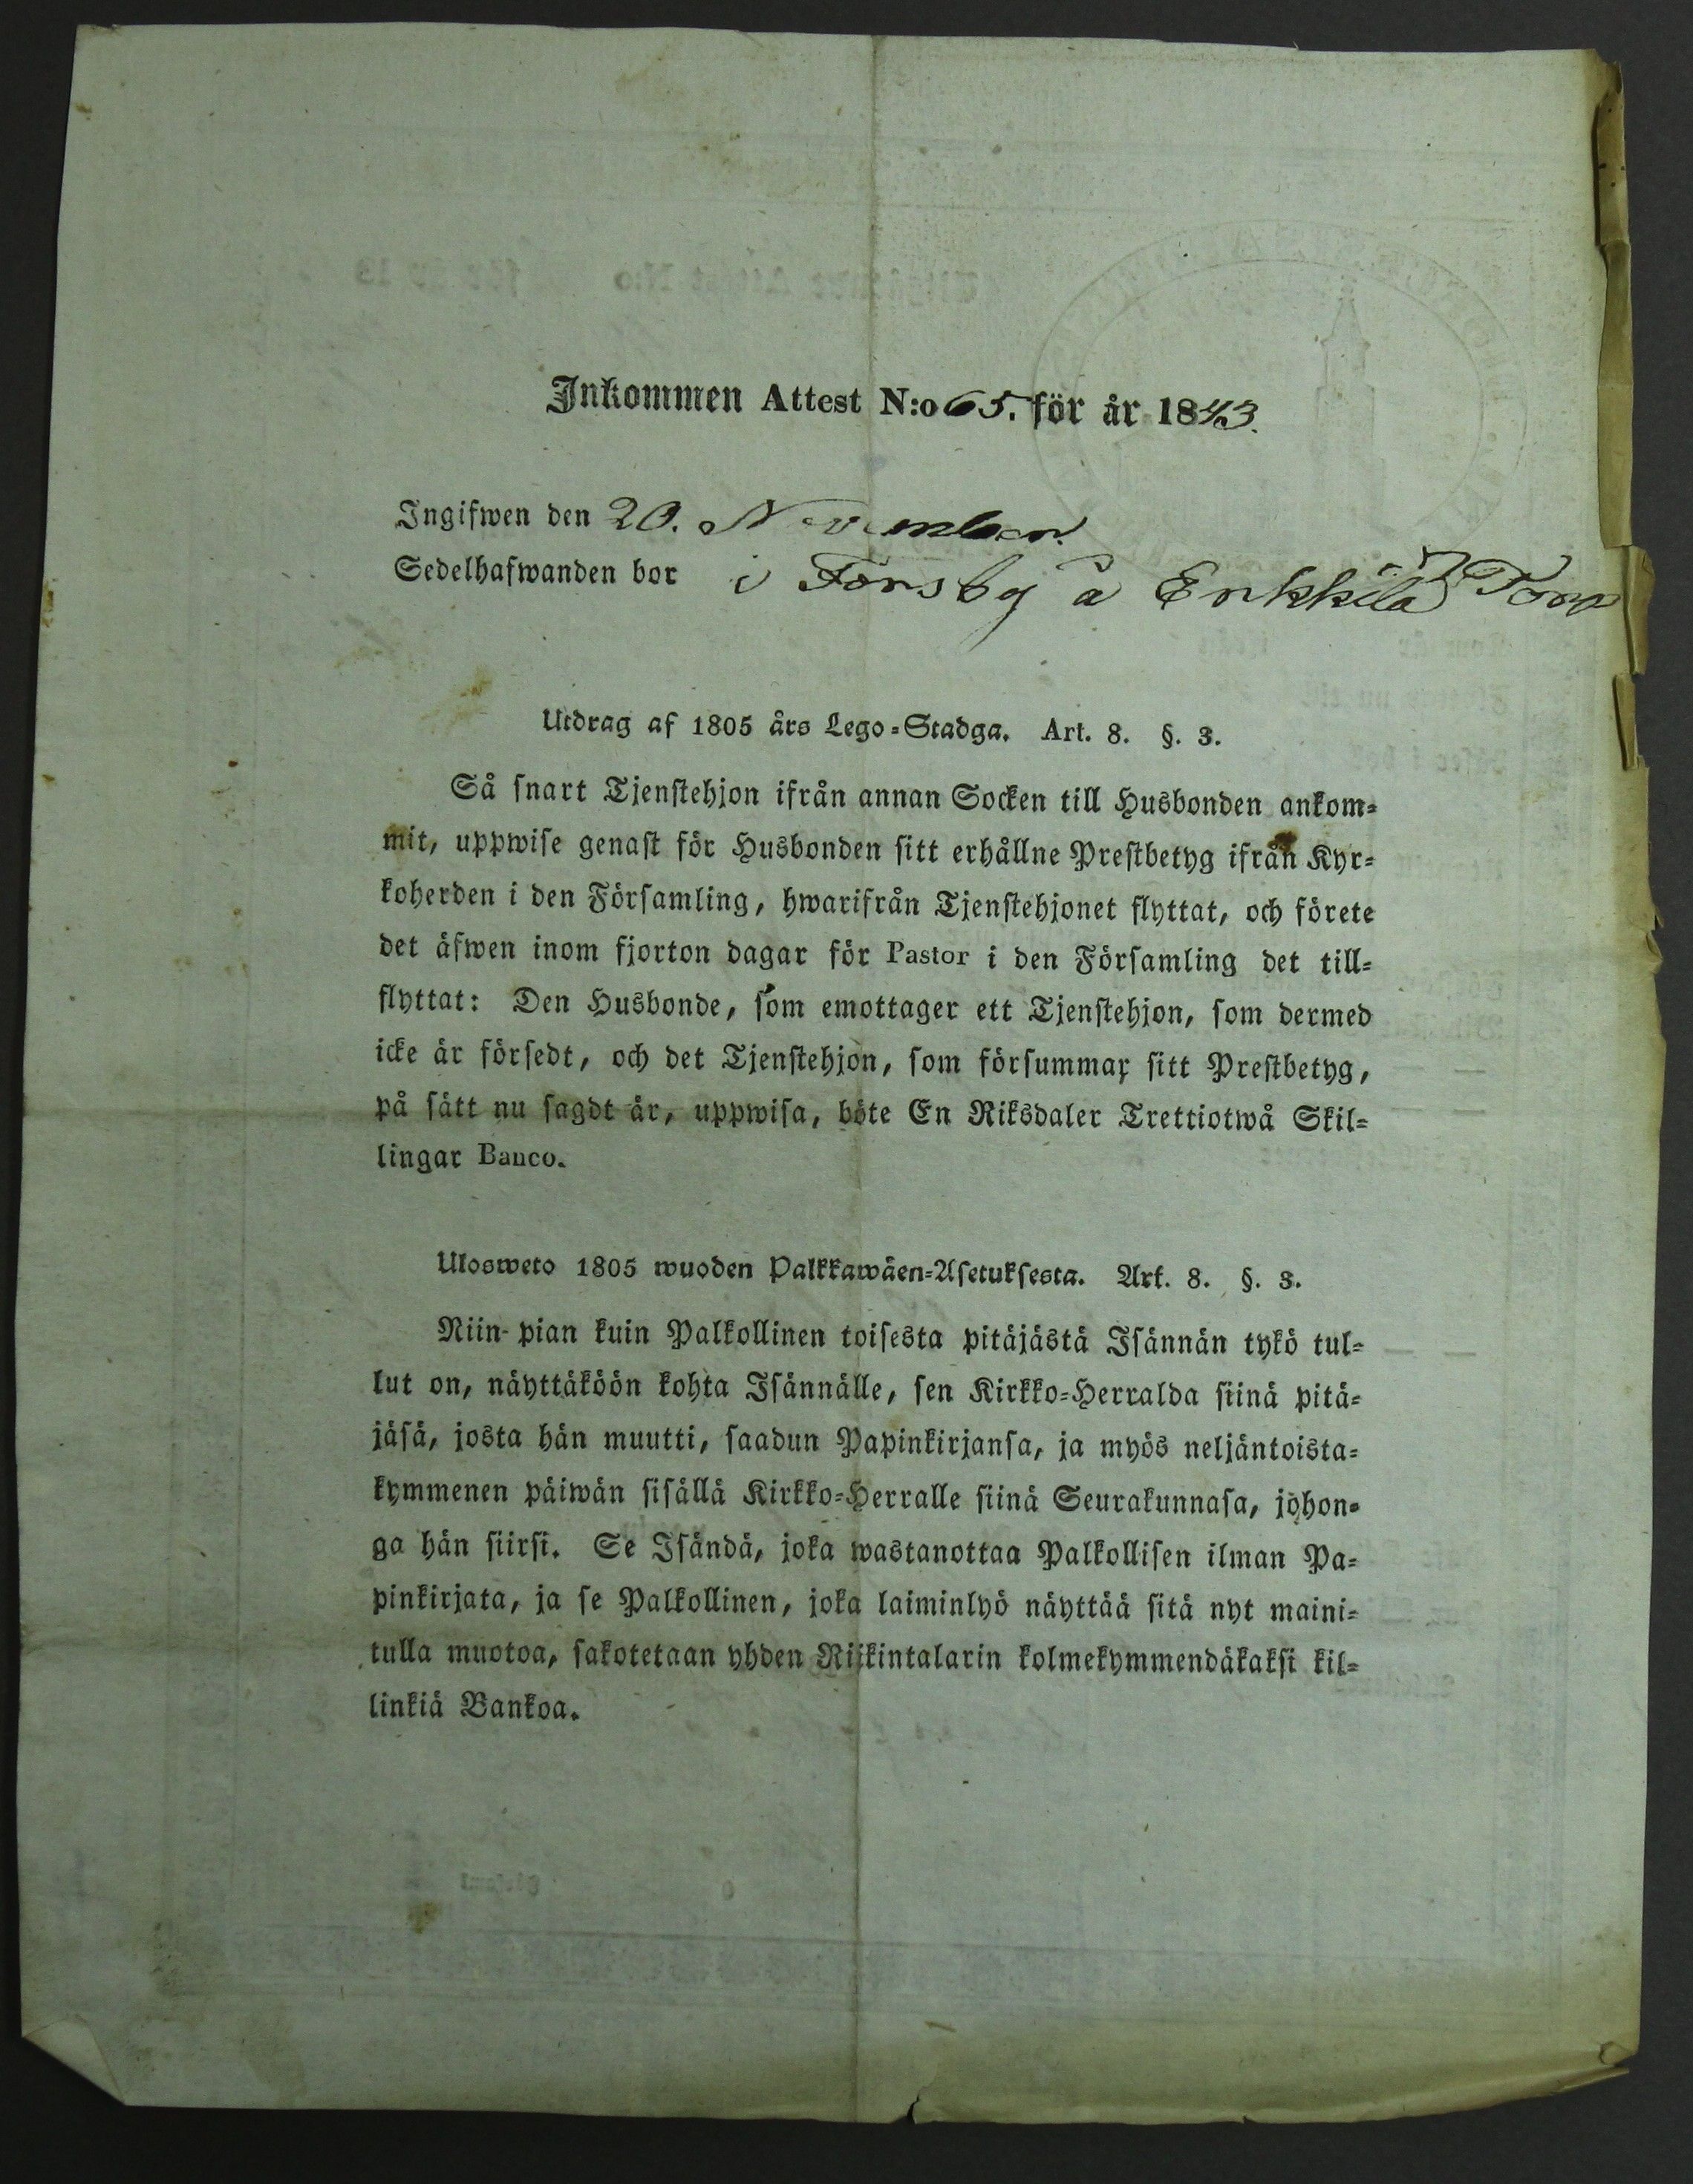 Inkommen Attest N:o 65. för år 1843.
Ingifwen den 20. November.
Sedelhafwanden bor i Forsby å Erkkilä Torp
Utdrag af 1805 års Lego-Stadga. Art. 8. §. 3.
Så snart Tjenstehjon ifrån annan Socken till Husbonden ankom-
mit, uppwise genast för Husbonden sitt erhållne Prestbetyg ifrån Kyr-
koherden i den Församling, hwarifrån Tjenstehjonet flyttat, och förete
det äfwen inom fjorton dagar för Pastor i den Församling det till-
flyttat: Den Husbonde, som emottager ett Tjenstehjon, som dermed
icke är försedt, och det Tjenstehjon, som försummar sitt Prestbetyg,
på sätt nu sagdt är, uppwisa, böte En Riksdaler Trettiotwå Skil-
lingar Banco.
Ulosweto 1805 wuoden Palkkawäen-Asetuksesta. Art. 8. §. 3.
Niin pian kuin Palkollinen toisesta pitäjästä Isännän tykö tul-
lut on, näyttäköön kohta Isännälle, sen Kirkko-Herralda siinä pitä-
jäsä, josta hän muutti, saadun Papinkirjansa, ja myös neljäntoista-
kymmenen päiwän sisällä Kirkko-Herralle siinä Seurakunnasa, johon-
ga hän siirsi. Se Isändä, joka wastanottaa Palkollisen ilman Pa-
pinkirjata, ja se Palkollinen, joka laiminlyö näyttää sitä nyt maini-
tulla muotoa, sakotetaan yhden Riikintalarin kolmekymmendäkaksi kil-
linkiä Bankoa.